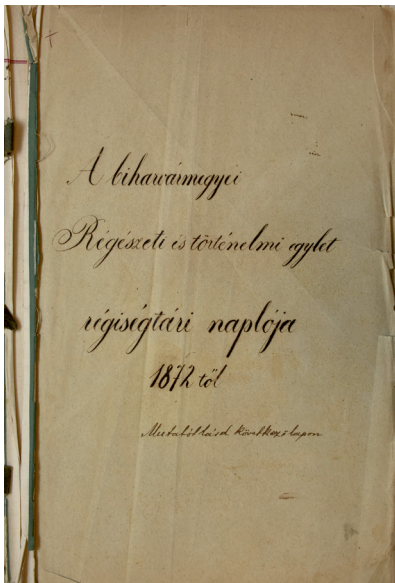 A biharvármegyei
Régészeti és történelmi egylet
régiségtári naplója
1872 től
Mutatót lásd következő lapon